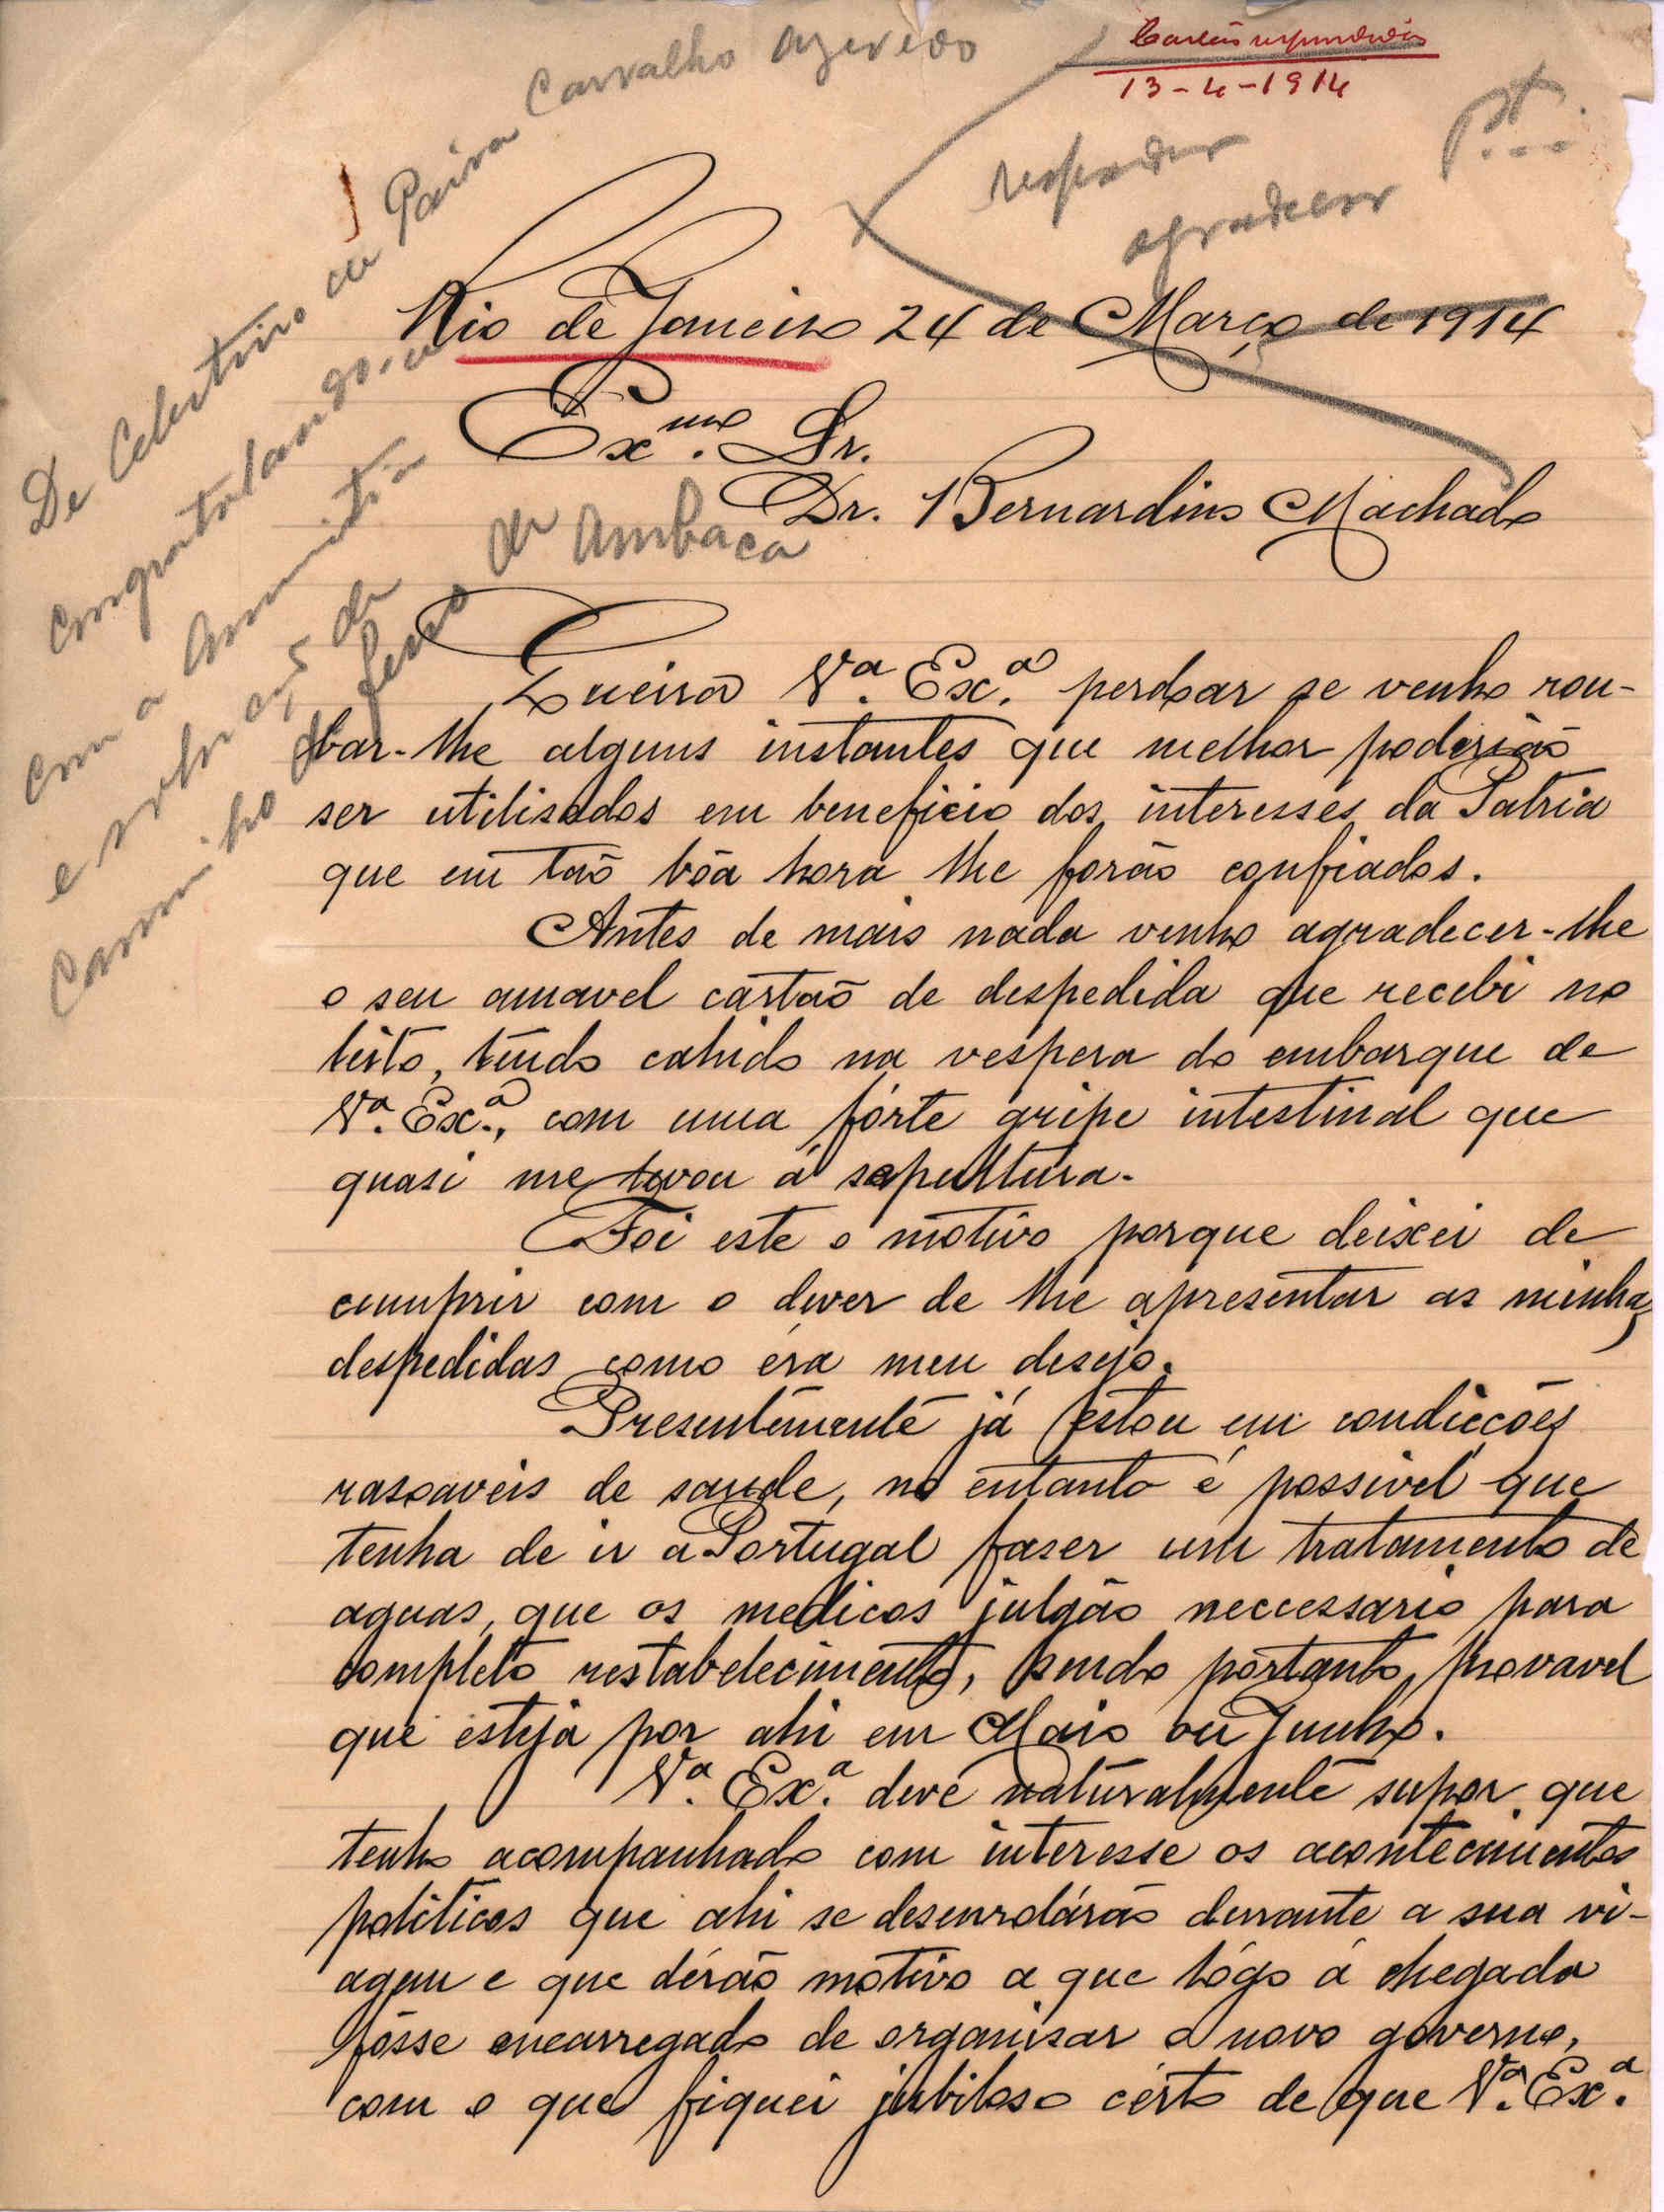 Cartão respondido
13-4-1914
responder
agradecer
De Celestino de Paiva Carvalho Azevedo
congratulando-se
com a amnistia
e solução do
Caminho de ferro de Ambaca
Rio de Janeiro 24 de Março de 1914
Exmo. Sr.
Dr. Bernardino Machado
Queira Vª. Exª. perdoar se venho rou-
bar-lhe alguns instantes que melhor poderião
ser utilisados em beneficio dos interesses da Patria
que em tão bôa hora lhe forão confiados.
Antes de mais nada venho agradecer-lhe
o seu amavel cartão de despedida que recebi no
leito, tendo cahido na vespera do embarque de
Vª. Exª., com uma fórte gripe intestinal que
quasi me levou á sepultura.
Foi este o motivo porque deixei de
cumprir com o dever de lhe apresentar as minhas
despedidas como éra meu desejo.
Presentemente já estou em condicções
rasoaveis de saude, no entanto é possivel que
tenha de ir a Portugal faser um tratamento de
aguas, que os medicos julgão neccessario para
completo restabelecimento, sendo portanto, provavel
que esteja por ahi em Maio ou Junho.
Vª. Exª. deve naturalmente supor que
tenho acompanhado com interesse os acontecimentos
politicos que ahi se desenroláráo durante a sua vi-
agem e que dérão motivo a que lógo á chegada
fôsse encarregado de organisar o novo governo,
com o que fiquei jubiloso cérto de que Vª. Exª.